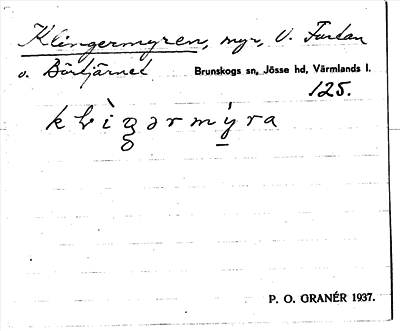 Klingermyren, myr, V. Furtan
o. Börtjärnet Brunskogs sn, Jösse hd, Värmlands l.
125.
P. O. GRANÉR 1937.